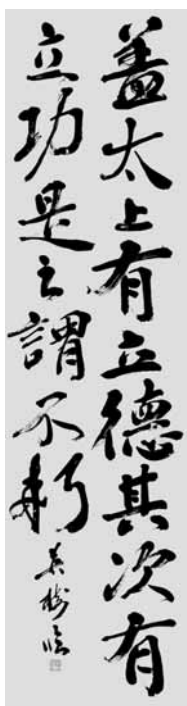 蓋太上有立德其次有
立功是之謂不朽
臨